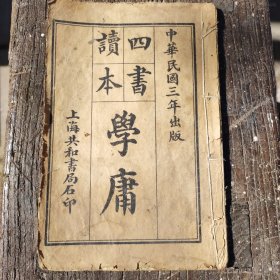 中華民國三年出版
四書
讀本
學庸
上海共和書局石印